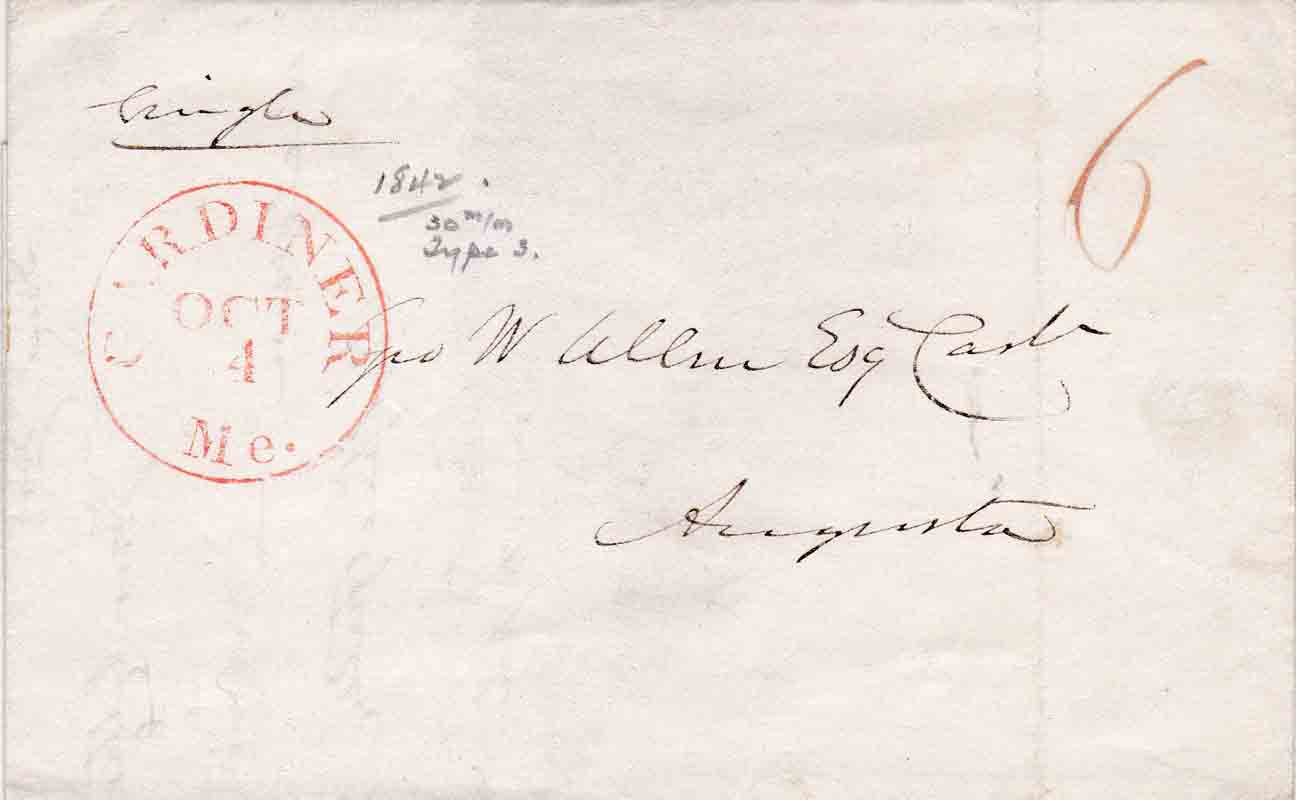 Single
6
1842.
30 m/m
Type 3.
GARDINER
OCT
4
Me.
Geo W Allen Esq Cashr
Augusta